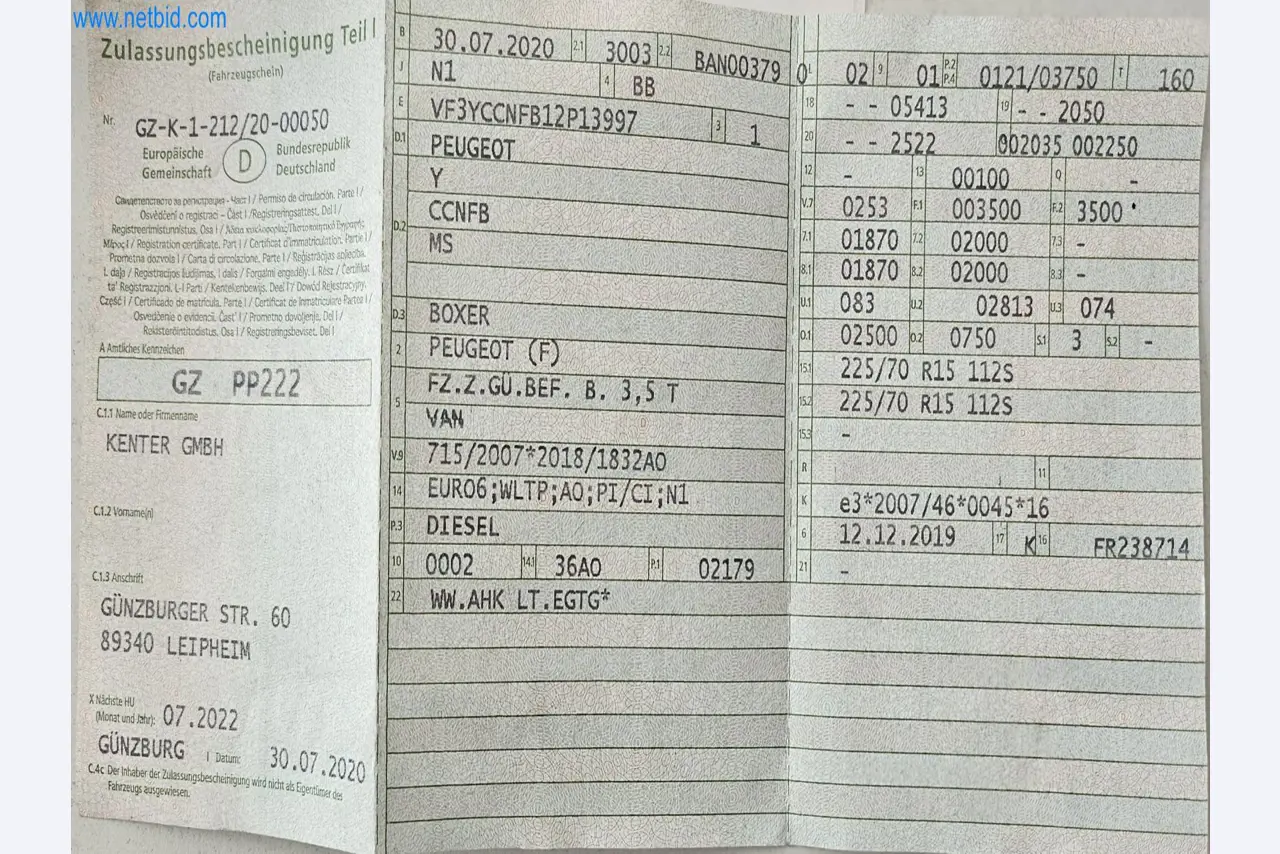 www.netbid.com
Zulassungsbescheinigung Teil I
(Fahrzeugschein)
Nr. GZ-K-1-212/20-00050
Europäische Gemeinschaft D Bundesrepublik Deutschland
Свидетелство за регистрация - Част I / Permiso de circulación. Parte I /
Osvědčení o registraci - Část I / Registreringsattest. Del I /
Registreerimistunnistus. Osa I /
Registration certificate. Part I / Certificat d'immatriculation. Partie I /
Prometna dozvola I / Carta di circolazione. Parte I / Reģistrācijas apliecība.
I. daļa / Registracijos liudijimas. I dalis / Forgalmi engedély. I. Rész / Ċertifikat
ta' Reġistrazzjoni. L-I Parti / Kentekenbewijs. Deel I / Dowód Rejestracyjny.
Część I / Certificado de matrícula. Parte I / Certificat de înmatriculare Partea I /
Osvedčenie o evidencii. Časť I / Prometno dovoljenje. Del I /
Rekisteröintitodistus. Osa I / Registreringsbeviset. Del I
A Amtliches Kennzeichen
GZ PP222
C.1.1 Name oder Firmenname
KENTER GMBH
C.1.2 Vorname(n)
C.1.3 Anschrift
GÜNZBURGER STR. 60
89340 LEIPHEIM
X Nächste HU
(Monat und Jahr): 07.2022
GÜNZBURG I Datum: 30.07.2020
C.4c Der Inhaber der Zulassungsbescheinigung wird nicht als Eigentümer des
Fahrzeugs ausgewiesen.
B 30.07.2020 2.1 3003 2.2 BAN00379 0
J N1 4 BB
E VF3YCCNFB12P13997 3 1
D.1 PEUGEOT
Y
D.2 CCNFB
MS
D.3 BOXER
2 PEUGEOT (F)
5 FZ.Z.GÜ.BEF. B. 3,5 T
VAN
V.9 715/2007*2018/1832AO
14 EURO6;WLTP;AO;PI/CI;N1
P.3 DIESEL
10 0002 14.1 36AO P.1 02179
22 WW.AHK LT.EGTG*
L 02 9 01 P.2 P.4 0121/03750 T 160
18 - - 05413 19 - - 2050
20 - - 2522 002035 002250
12 - 13 00100 Q -
V.7 0253 F.1 003500 F.2 3500
7.1 01870 7.2 02000 7.3 -
8.1 01870 8.2 02000 8.3 -
U.1 083 U.2 02813 U.3 074
O.1 02500 O.2 0750 S.1 3 S.2 -
15.1 225/70 R15 112S
15.2 225/70 R15 112S
15.3 -
R 11
K e3*2007/46*0045*16
6 12.12.2019 17 K 16 FR238714
21 -